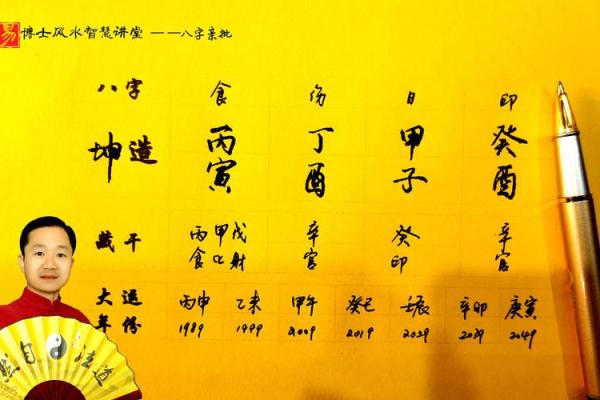 易 博士风水智慧讲堂 ——八字亲批
八字 食 伤 日 印
坤造 丙寅 丁酉 甲子 癸酉
藏干 丙 甲 戊 辛 癸 辛
食 比 财 官 印 官
大运 丙申 乙未 甲午 癸巳 壬辰 辛卯 庚寅
年份 1989 1999 2009 2019 2029 2039 2049
然自法道